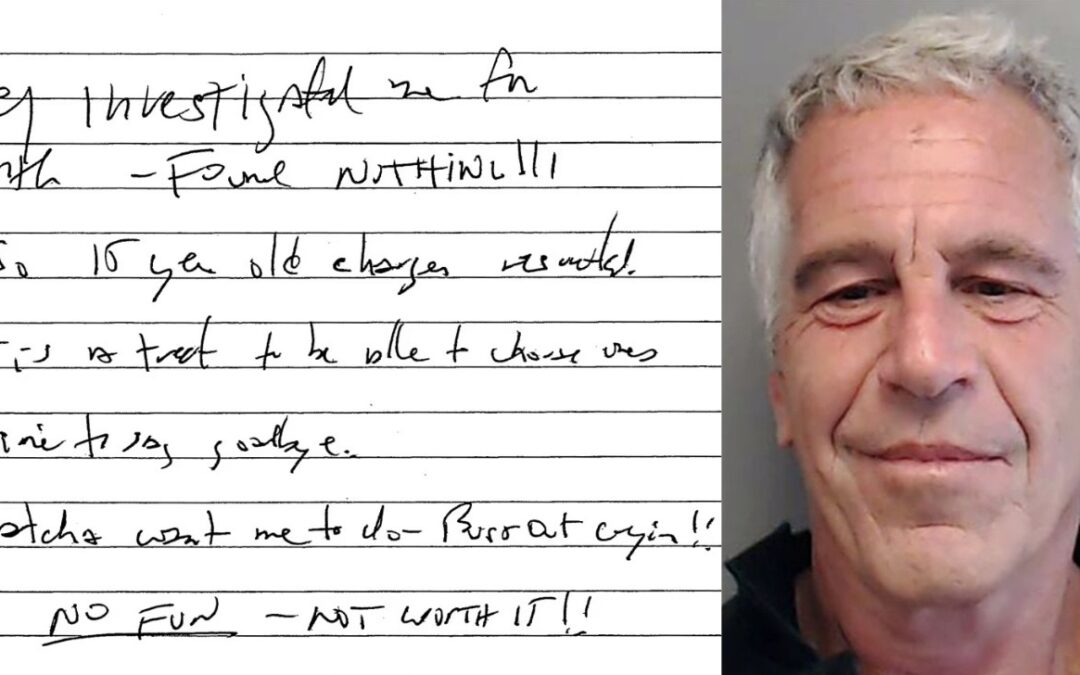 ey investigated me for
nth – Found NOTHING!!!
So 15 year old charges resulted.
t is a treat to be able to choose ones
ime to say goodbye.
atcha want me to do – Burst out cryin!!
NO FUN – NOT WORTH IT!!